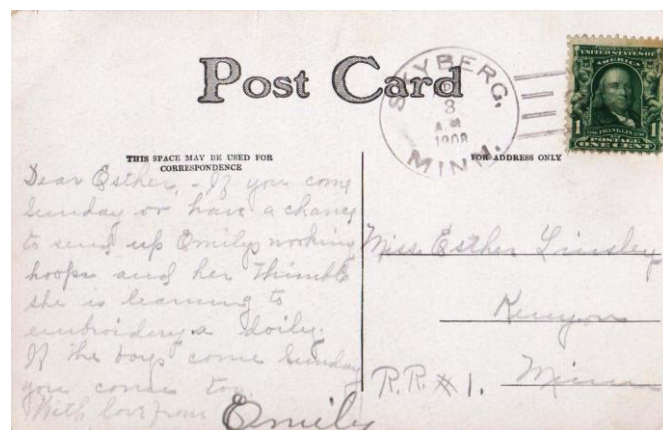 Post Card
SKYBERG,
3
A.M
1908
MINN.
UNITED STATES OF
AMERICA
FRANKLIN
1 POSTAGE 1
ONE CENT
THIS SPACE MAY BE USED FOR
CORRESPONDENCE
FOR ADDRESS ONLY
Dear Esther, - If you come
Sunday or have a chance
to send up Emilys working
hoops and her thimble
she is learning to
embroidery a doily.
If the boys come Sunday
you come too
With love from Emily
Miss Esther Linsley
Kenyon
R.R. # 1. Minn